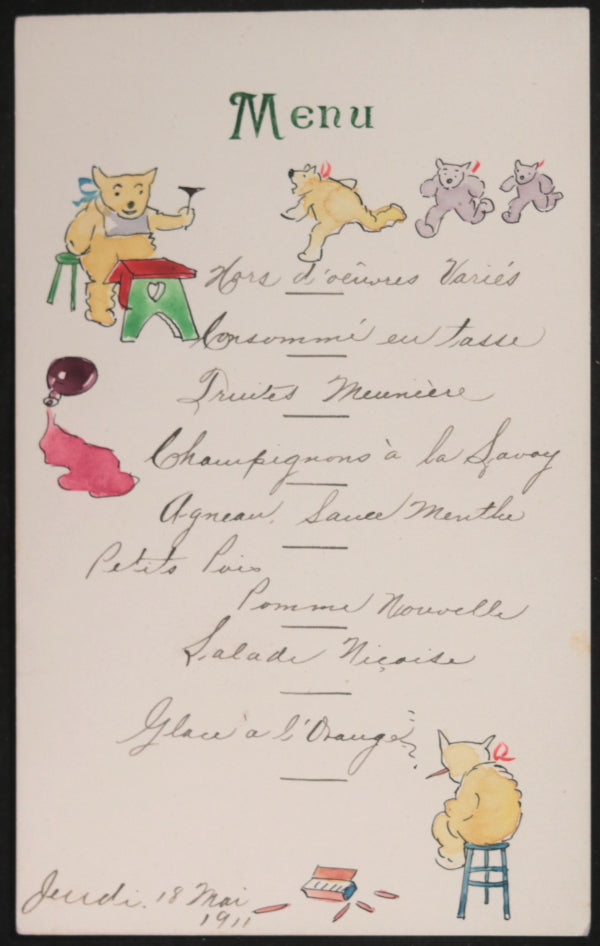 Menu
Hors d'oeuvres Variés
Consommé en tasse
Truites Meunière
Champignons à la Savoy
Agneau, Sauce Menthe
Petits Pois
Pomme Nouvelle
Salade Niçoise
Glace à l'Orange
Jeudi, 18 Mai
1911